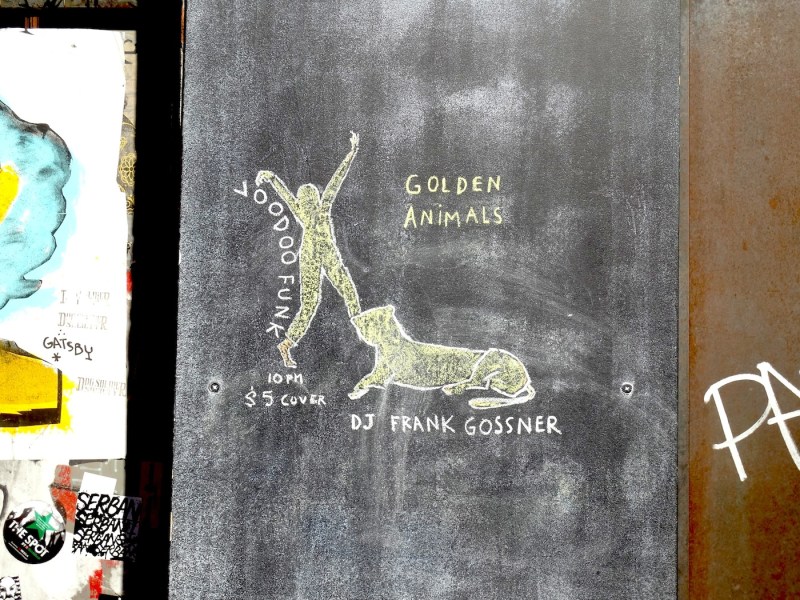 GOLDEN
ANIMALS
VOODOO FUNK
10 PM
$5 COVER
DJ FRANK GOSSNER
GATSBY
*
THE SPOT
SERBAN
SERBAN
SERBAN
PA